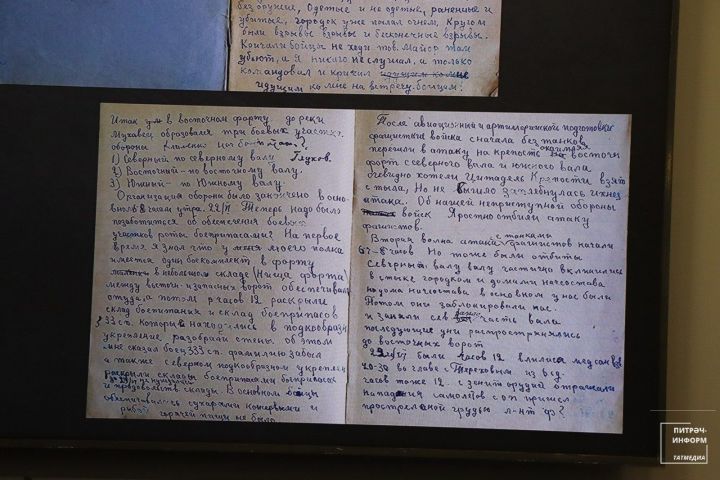 без оружие, Одетые и не одетые, раненные и
убитые, городок уже пылал огнем, Кругом
были взрывы взрывы и бесконечные взрывы.
Кричали бойцы не ходи тов. Майор там
убьют, а Я никого не слушал, и только
командовал и кричил идущим ко мне
идущим ко мне на встречу. бойцам:
Итак в восточном форту до реки
Мухавец образовался три боевых участка.
обороны
1) Северный по северному валу
2) Восточный - по восточному валу.
3) Южный - по Южному валу.
Организация обороны было закончено в осно-
вном 8 часам утра. 22/VI Теперь надо было
позаботится об обеспечения боевых
участков роты боеприпасами? На первое
время Я знал что у меня моего полка
имеется один боекомплект в форту
в небольшом складе (Ниша форта)
между восточн. и западных ворот обеспечивали
оттуда, а потом часов 12 раскрыли
склад боепитания и склад боеприпасов
33 сп. Которые находились в подкообразн
укрепление разобрали стены. об этом
мне сказал боец 333 сп. фамилию забыл
а также северном подкообразном укреплен
раскрыли склады боеприпасами боеприпасов
и продовольств склады. В основном бойцы
обеспечивались сухарями консервами и
горячей пищи не было
После авиационный и артиллерийской подготовки
фашистные войска сначала без танков
перешли в атаку на крепость восточн
форт с северного вала и южного вала
очевидно хотели Цитадель Крепости взять
с тыла. Но не вышло захлебнулась их
атака. Об нашей неприступной обороны
войск Яростно отбили атаку
фашистов.
Вторая волна атаки с танками фашистов начали
часов Но тоже были отбиты
Северный валу валу частично вклинились
в стыке городком и домами начсостава
но дома начсостава в основном у нас были
Потом они заблокировали нас.
и заняли сев. часть вала
последующие дни распространялись
до восточных ворот
22/VI были часов 12 влилась медсанвзв
20-30 во главе с
часов тоже 12. с зенит орудий отражали
нападения самолетов с оп пришел
простреленой грудью л-нт
ПИТРӘЧ-
ИНФОРМ
ТАТМЕДИА